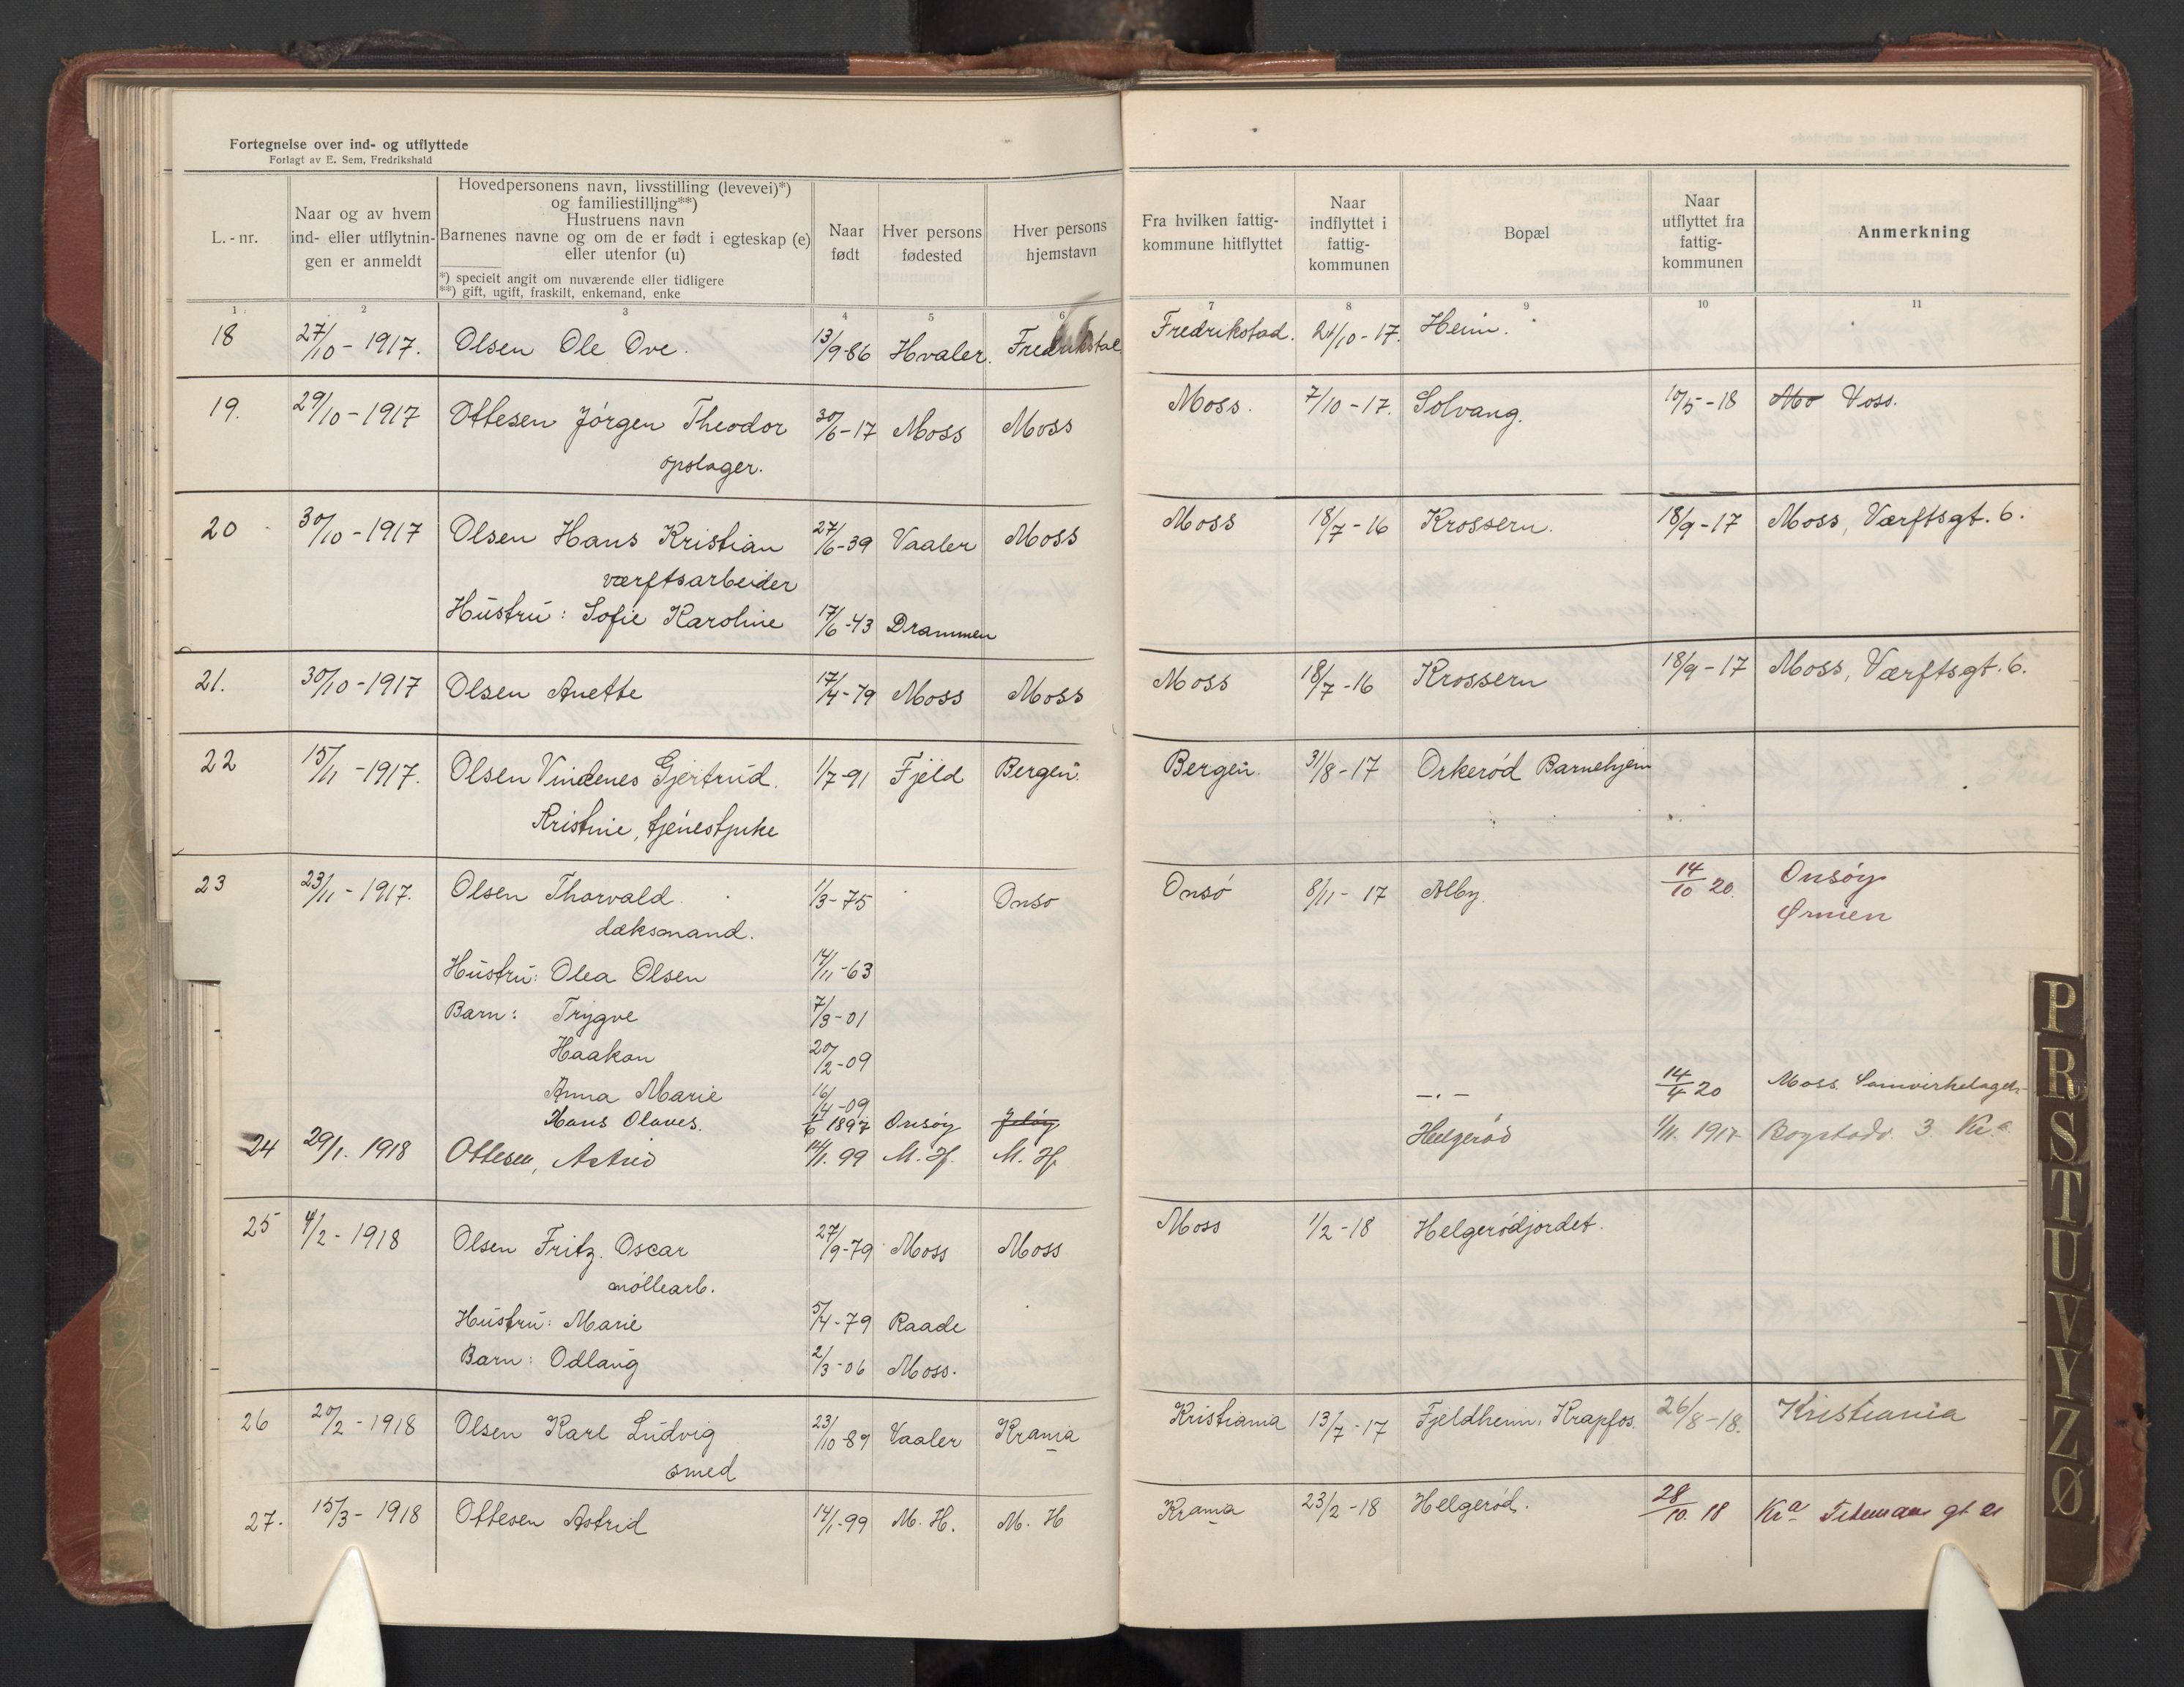 Fortegnelse over ind- og utflyttede
Forlagt av E. Sem, Fredrikshald
L.-nr.
Naar og av hvem ind- eller utflytningen er anmeldt
Hovedpersonens navn, livsstilling (levevei)*)
og familiestilling**)
Hustruens navn
Barnenes navne og om de er født i egteskap (e)
eller utenfor (u)
*) specielt angit om nuværende eller tidligere
**) gift, ugift, fraskilt, enkemand, enke
Naar født
Hver persons fødested
Hver persons hjemstavn
Fra hvilken fattig-kommune hitflyttet
Naar indflyttet i fattig-kommunen
Bopæl
Naar utflyttet fra fattig-kommunen
Anmerkning
1 2 3 4 5 6 7 8 9 10 11
18 27/10 - 1917. Olsen Ole Ove. 13/9-86 Hvaler. Fredrikstad Fredrikstad. 24/10-17. Heim.
19. 29/10 - 1917 Ottesen Jörgen Theodor 30/6-17 Moss Moss Moss. 7/10-17. Solvang. 10/5-18 Mo Voss.
opslager.
20 30/10 - 1917 Olsen Hans Kristian 27/6-39 Vaaler Moss Moss 18/7-16 Krossern. 18/9-17 Moss, Værftsgt. 6.
værftsarbeider
Hustru: Sofie Karoline 17/6-43 Drammen
21. 30/10 - 1917 Olsen Anette 17/4-79 Moss Moss Moss 18/7-16 Krossern 18/9-17 Moss, Værftsgt. 6.
22 15/11 - 1917. Olsen Vindenes Gjertrud. 1/7-91 Fjeld Bergen. Bergen. 31/8-17 Orkeröd Barnehjem
Kristine, tjenestpike
23 23/11 - 1917. Olsen Thorvald 1/3-75 Onsö Onsö 8/11-17 Alby. 14/10 20. Onsöy
dæksmand. Ørmen
Hustru: Olea Olsen 14/11-63
Barn: Trygve 7/3-01
Haakon 20/2-09
Anna Marie 16/4-09 -.- 14/4 20 Moss Samvirkelaget
Hans Olaves. 1/6 1897 Onsöy Jelöy
24 29/1. 1918 Ottesen, Astrid 14/1. 99 M. H. M. H. Helgeröd 1/11. 1917 Bogstadv. 3 Kr.a
25 4/2 - 1918 Olsen Fritz Oscar 27/9-79 Moss Moss Moss 1/2-18 Helgerödjordet.
möllearb.
Hustru: Marie 5/4-79 Raade
Barn: Odlaug 2/3-06 Moss.
26 20/2 - 1918 Olsen Karl Ludvig 23/10-89 Vaaler Krania Kristiania 13/7-17 Fjeldheim, Krapfos. 26/8-18. Kristiania
smed
27. 15/3 - 1918 Ottesen Astrid 14/1-99 M. H. M. H Krania 23/2-18 Helgeröd. 28/10. 18 Kra gt 21
P
R
S
T
U
V
Y
Z
Ø